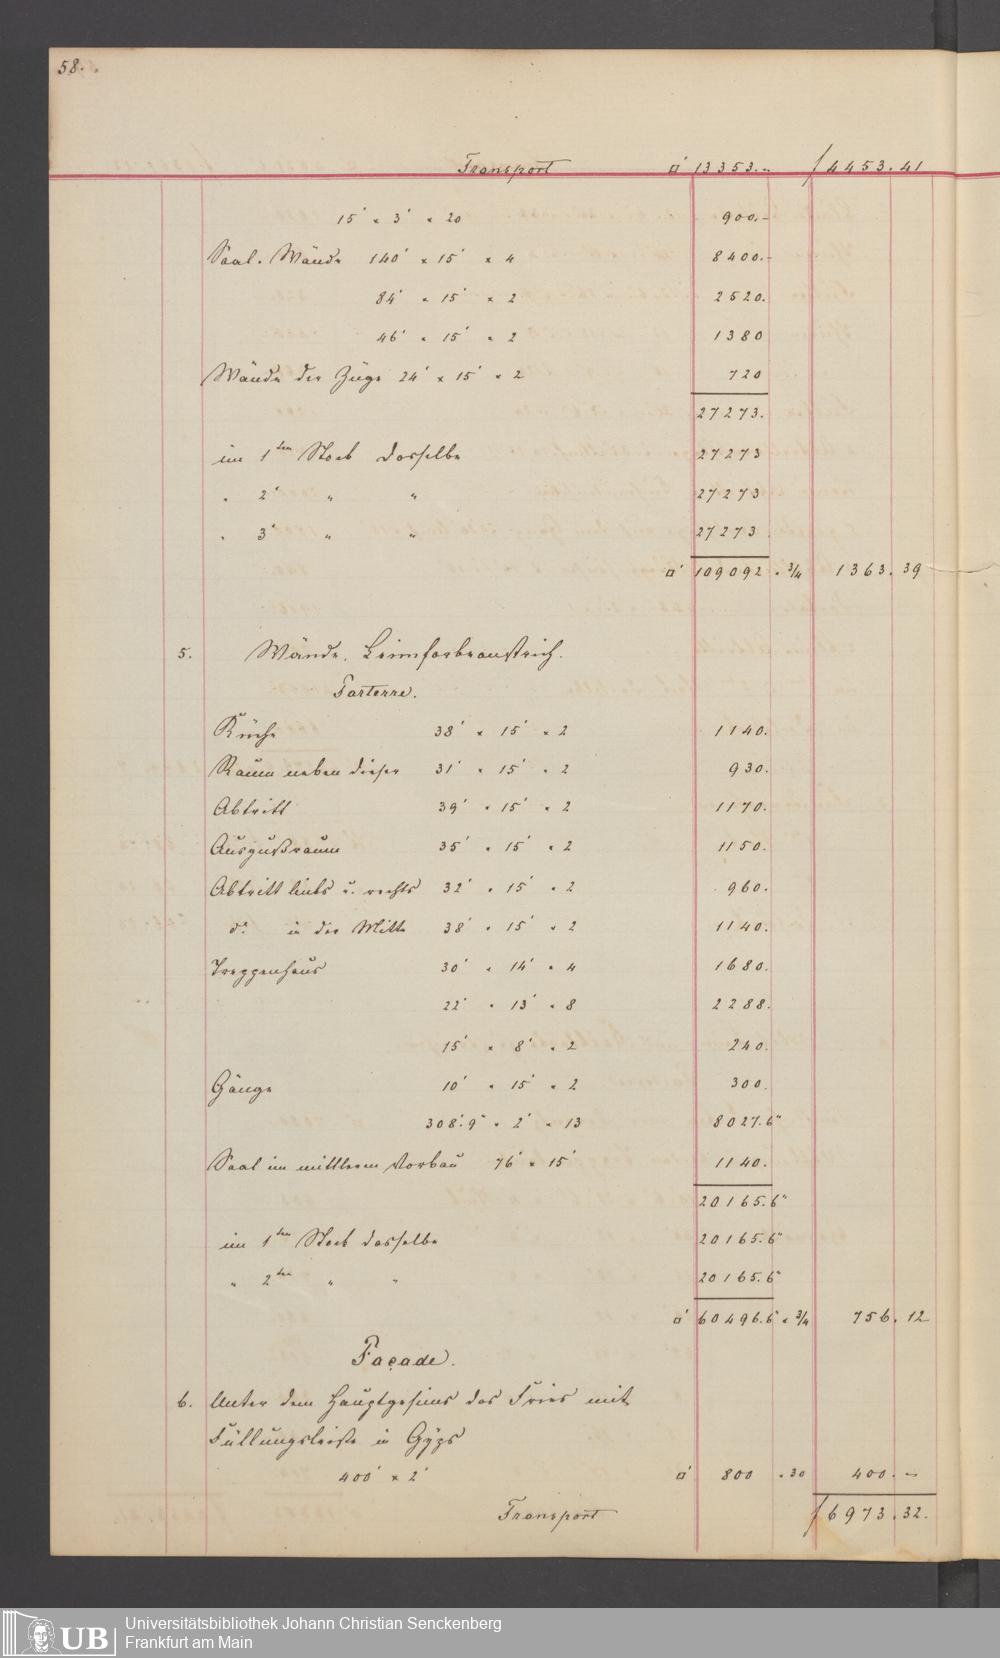 58.
Transport □' 13353.– f 4453.41
15' × 3' × 20 900.–
Saal-Wände 140' × 15' × 4 8400.–
84' × 15' × 2 2520.
46' × 15' × 2 1380
Wände der Züge 24' × 15' × 2 720
27273.
im 1ten Stock dasselbe 27273
" 2' " " 27273
" 3' " " 27273
□' 109092 × 3/4 1363.39
5. Wände. Leimfarbeanstrich.
Parterre.
Küche 38' × 15' × 2 1140.
Raum neben dieser 31' × 15' × 2 930.
Abtritt 39' × 15' × 2 1170.
Ausgußraum 35' × 15' × 2 1150.
Abtritt links u. rechts 32' × 15' × 2 960.
do. in der Mitte 38' × 15' × 2 1140.
Treppenhaus 30' × 14' × 4 1680.
22' × 13' × 8 2288.
15' × 8' × 2 240.
Gänge 10' × 15' × 2 300.
308'.9" × 2' × 13 8027.6"
Saal im mittleren Vorbau 76' × 15' 1140.
20165.6"
im 1ten Stock dasselbe 20165.6"
" 2ten " " 20165.6"
□' 60496.6 × 3/4 756.12
Façade.
6. Unter dem Hauptgesims das Fries mit
Füllungsleiste in Gÿps
400' × 2' □' 800 × 30 400.–
Transport f 6973.32.
UB Universitätsbibliothek Johann Christian Senckenberg
Frankfurt am Main